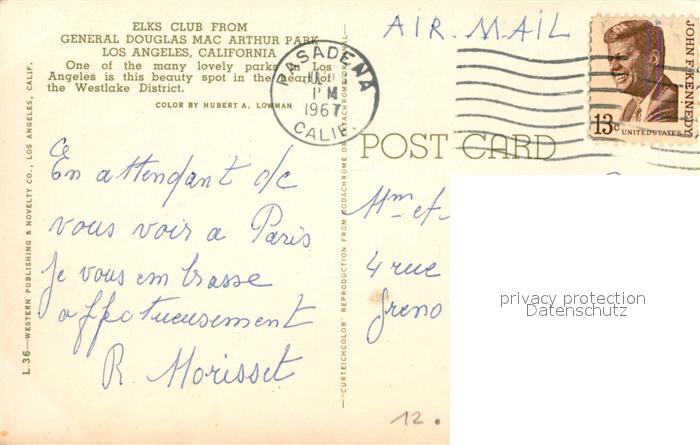 ELKS CLUB FROM
GENERAL DOUGLAS MAC ARTHUR PARK
LOS ANGELES, CALIFORNIA
One of the many lovely parks in Los
Angeles is this beauty spot in the heart of
the Westlake District.
COLOR BY HUBERT A. LOWMAN
L.36—WESTERN PUBLISHING & NOVELTY CO., LOS ANGELES, CALIF.
En attendant de
vous voir a Paris
je vous embrasse
affectueusement
R. Morisset
"CURTEICHCOLOR" REPRODUCTION FROM KODACHROME OR
PASADENA
PM
1967
CALIF.
AIR MAIL
JOHN F. KENNEDY
13c
UNITED STATES
POST CARD
Mm et
4 rue
Greno
privacy protection
Datenschutz
12.